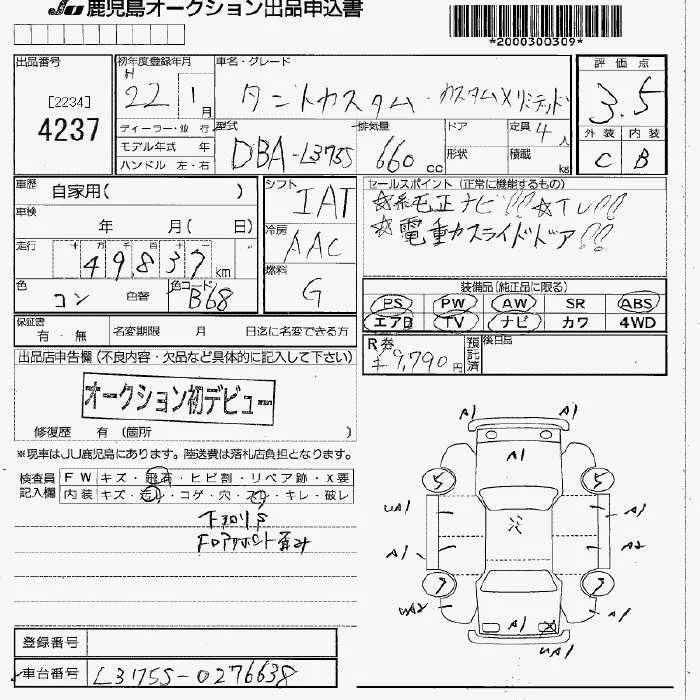 JU 鹿児島オークション出品申込書
*2000300309*
出品番号
[2234]
4237
初年度登録年月
H
22 年 1 月
車名・グレード
タントカスタム・カスタムXリミテッド
評価点
3.5
外装 内装
C B
ディーラー・並 行
モデル年式 年
ハンドル 左・右
型式
DBA-L375S
排気量
660 cc
ドア
形状
定員 4 人
積載 kg
車歴 自家用( )
車検 年 月( 日)
走行 十 万 千 百 十 一
49,837 km
色 コン 色替
色コード B68
シフト
IAT
冷房
AAC
燃料
G
セールスポイント (正常に機能するもの)
☆純正ナビ!! ☆TV!!
☆電動スライドドア!!
装備品(純正品に限る)
PS PW AW SR ABS
エアB TV ナビ カワ 4WD
R券
¥9,790円
預託済
後日品
保証書
有・無
名変期限 月 日迄に名変できる方
出品店申告欄 (不良内容・欠品など具体的に記入して下さい)
オークション初デビュー
修復歴 有 (箇所 )
※現車はJU鹿児島にあります。陸送費は落札店負担となります。
検査員
記入欄
FW キズ・飛石・ヒビ割・リペア跡・X要
内装 キズ・汚れ・コゲ・穴・スレ・キレ・破レ
A1 A1
A1
5 5
UA1 A1
A1 A2
7 7
UA2 A1
A1
UA1
登録番号
車台番号 L375S-0276638